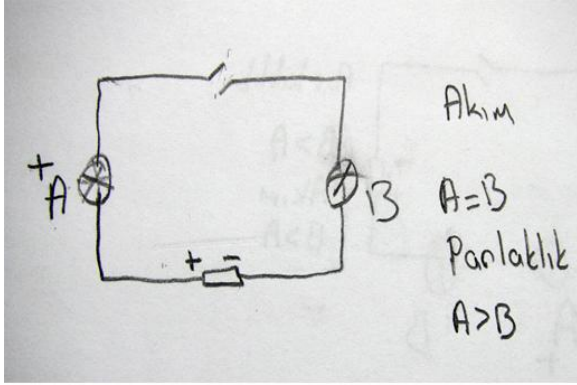 +
A
B
+ -
Akım
A=B
Parlaklık
A>B